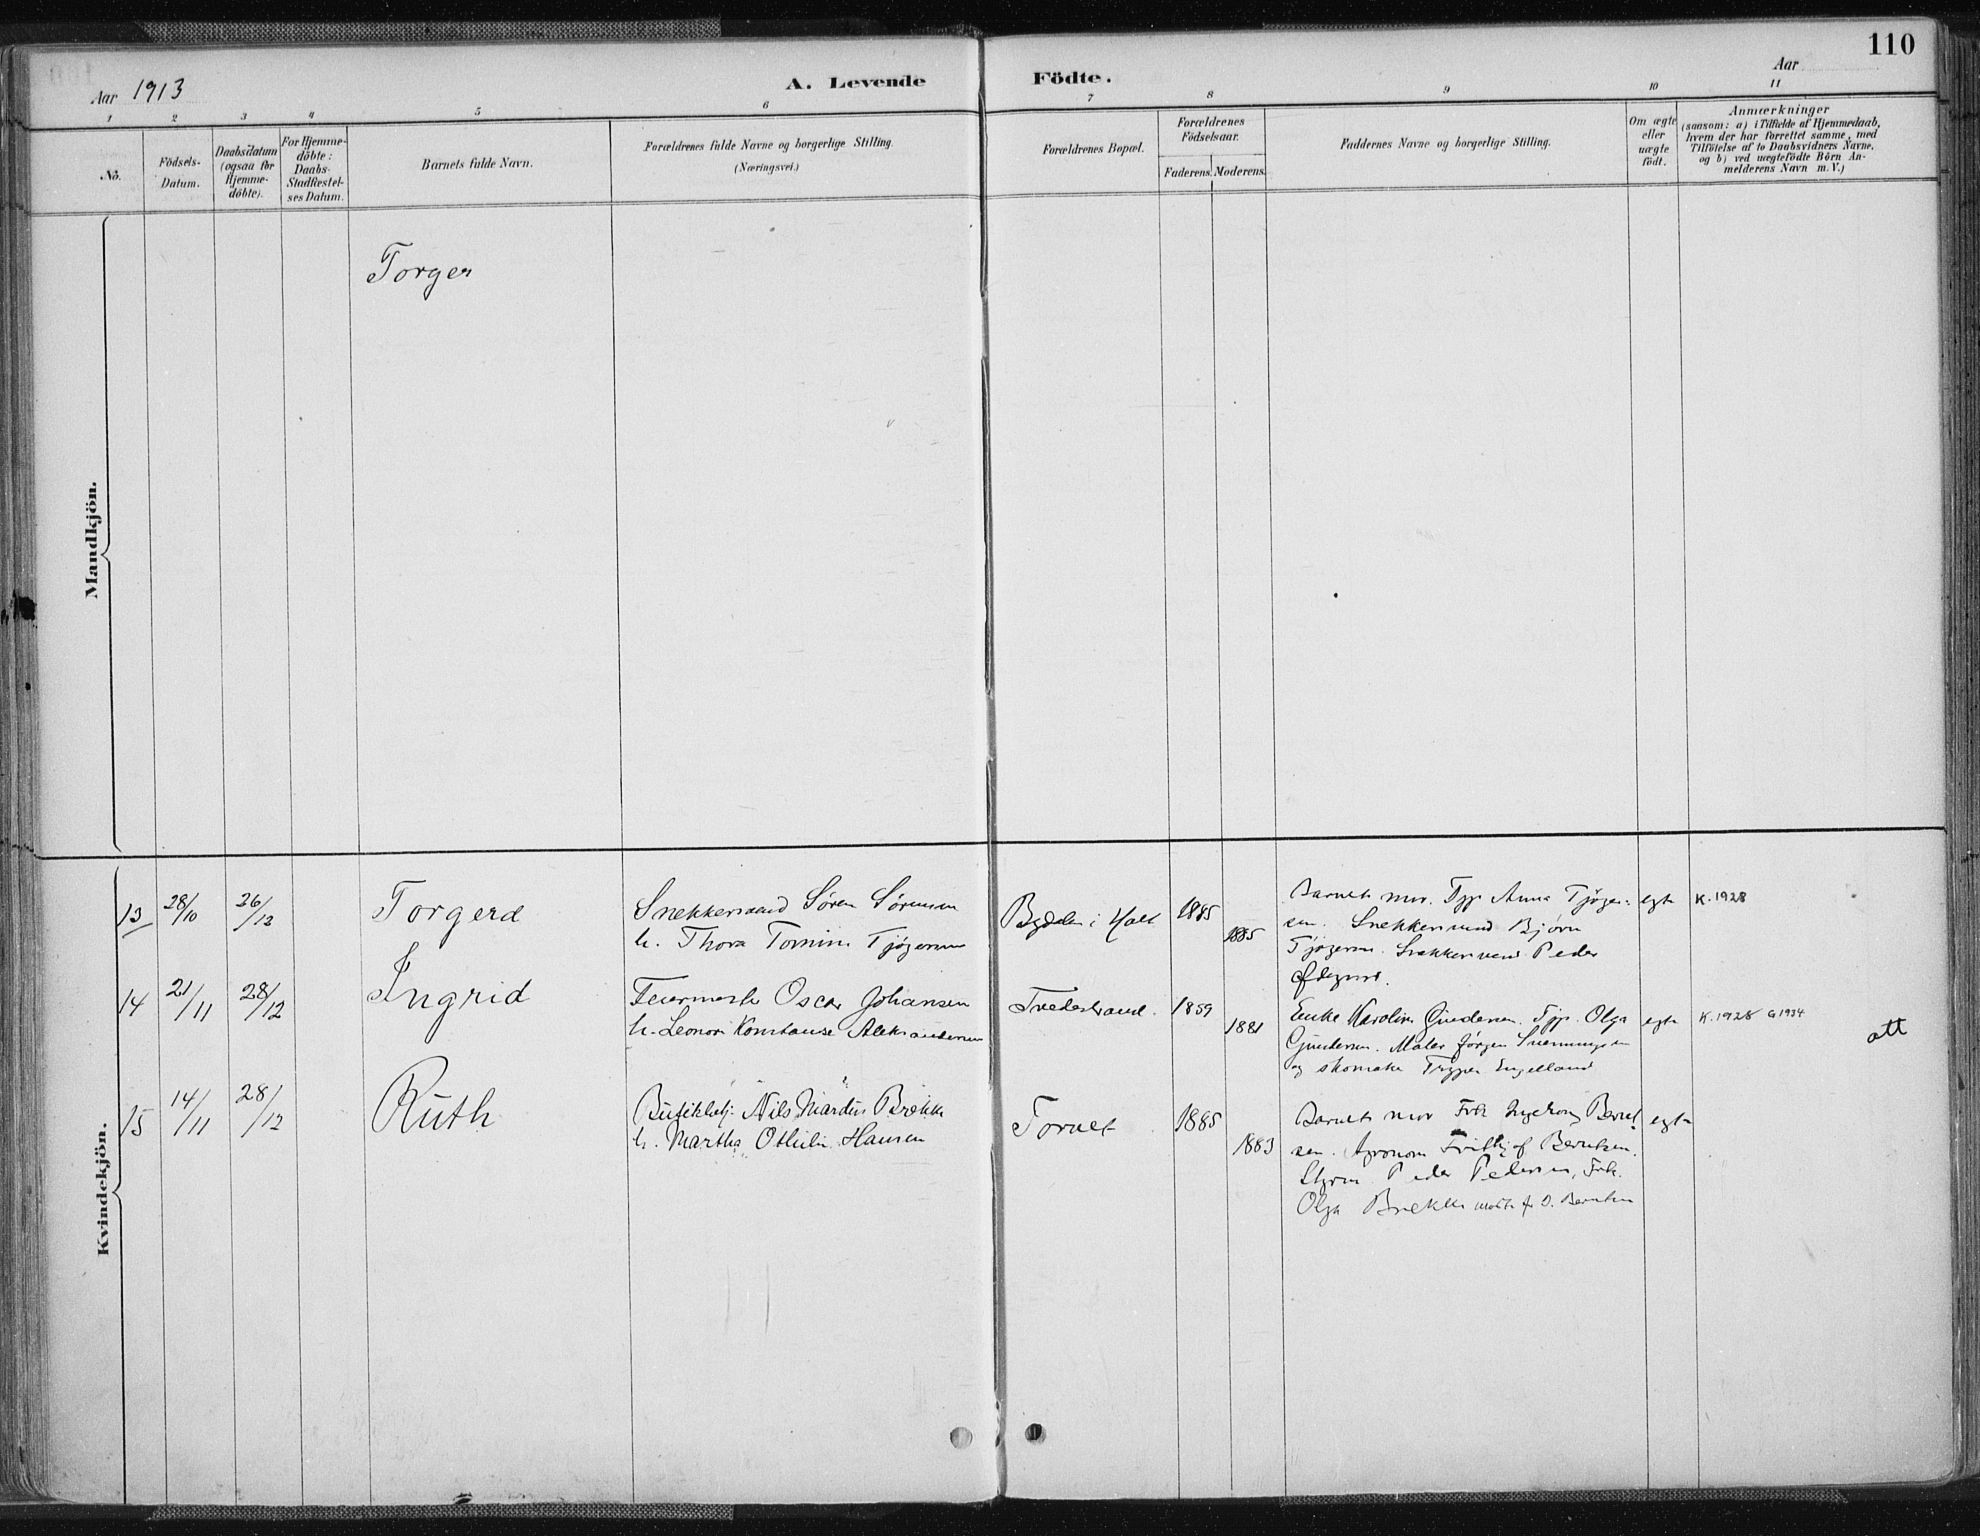 110
Aar 1913
A. Levende Födte.
Aar
1 2 3 4 5 6 7 8 9 10 11
No.
Födsels-Datum.
Daabsdatum (ogsaa for Hjemme-döbte).
For Hjemme-döbte: Daabs-Stadfæstel-ses Datum.
Barnets fulde Navn.
Forældrenes fulde Navne og borgerlige Stilling. (Næringsvei.)
Forældrenes Bopæl.
Forældrenes Födselsaar.
Faderens. Moderens.
Faddernes Navne og borgerlige Stilling.
Om ægte eller uægte födt.
Anmærkninger
(saasom: a) i Tilfælde af Hjemmedaab,
hvem der har forrettet samme, med
Tilföielse af to Daabsvidners Navne,
og b) ved uægtefödte Börn An-
melderens Navn m. V.)
Mandkjön.
Torger
Kvindekjön.
13 28/10 26/12 Torgerd
Snekkersvend Søren Sørensen
h. Thora Tomine Tjøgersen
Bygden i Holt 1885 1885
Barnets mor. Tjp. Anna Tjøger-
sen. Snekkersvend Bjørn
Tjøgersen. Snekkersvend Peder
egte K. 1928
14 21/11 28/12 Ingrid
Feiermester Oscar Johansen
h. Leonore Konstanse Aleksandersen
Tvedestrand. 1859 1881
Enke Karoline Gundersen. Tjp. Olga
Gundersen. Maler Jørgen
og skomaker Engelland
egte K. 1928 G 1934
att
15 14/11 28/12 Ruth
Butikbetj. Nils Mardus Brekke
h. Martha Othilie Hansen
Torvet 1885 1883
Barnets mor Frk Ingeborg Bernt-
sen. Agronom Frithjof Berntsen.
Styrm Peder Pedersen, Frk.
Olga Brekke Berntsen
egte